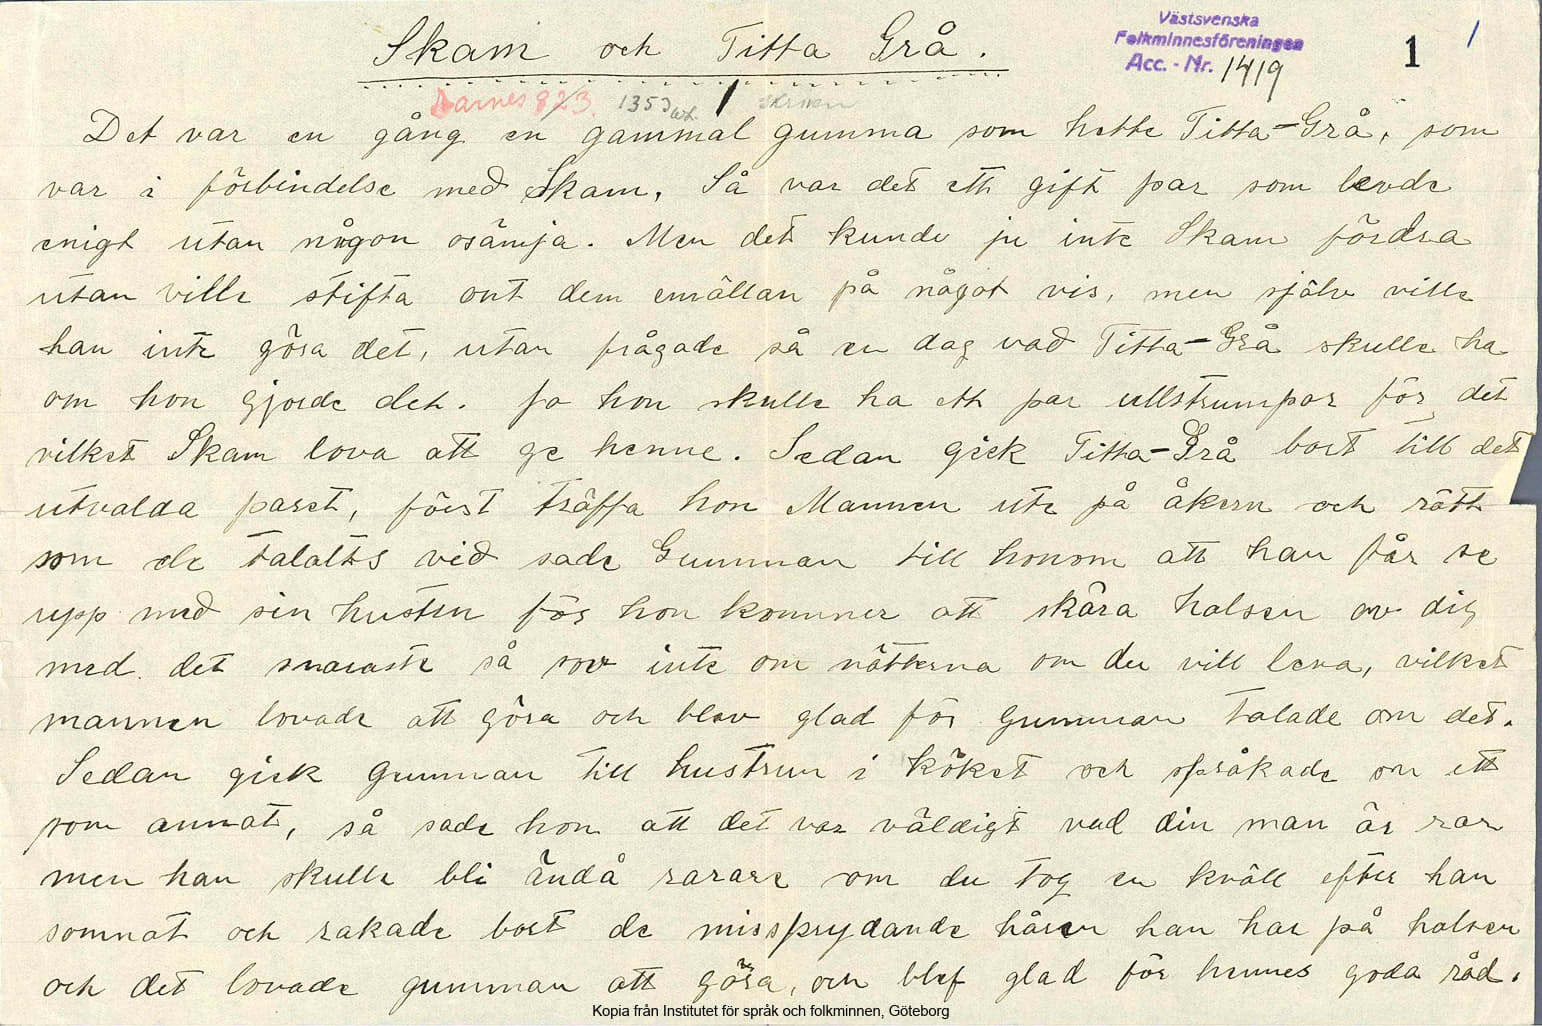 Västsvenska
Folkminnesföreningen
Acc. - Nr. 1419
1
Skam och Titta Grå.
Barnes 823. 1353
Det var en gång en gammal gumma som hette Titta-Grå, som
var i förbindelse med Skam. Så var det ett gift par som levde
enigt utan någon osämja. Men det kunde ju inte Skam fördra
utan ville stifta ont dem emällan på något vis, men själv ville
han inte göra det, utan frågade så en dag vad Titta-Grå skulle ha
om hon gjorde det. Jo hon skulle ha ett par ullstrumpor för det
vilket Skam lova att ge henne. Sedan gick Titta-Grå bort till det
utvalda paret, först träffa hon Mannen ute på åkern och rätt
som de talalts vid sade Gumman till honom att han får se
upp med sin hustru för hon kommer att skära halsen av dig
med det snaraste så sov inte om nätterna om du vill leva, vilket
mannen lovade att göra och blev glad för gumman talade om det.
Sedan gick gumman till hustrun i köket och språkade om ett
som annat, så sade hon att det var väldigt vad din man är rar
men han skulle bli ändå rarare om du tog en kväll efter han
somnat och rakade bort de missprydande håren han har på halsen
och det lovade gumman att göra, och blef glad för hennes goda råd.
Kopia från Institutet för språk och folkminnen, Göteborg